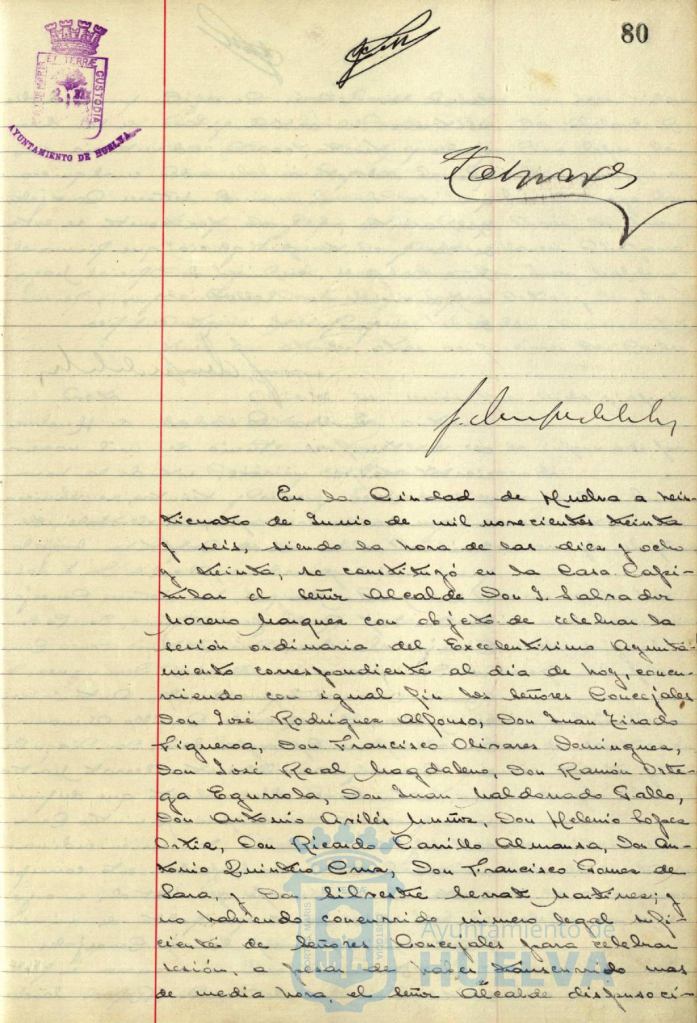 80
PORTUS MARIS ET TERRÆ CUSTODIA
AYUNTAMIENTO DE HUELVA
En la Ciudad de Huelva a vein-
ticuatro de Junio de mil novecientos treinta
y seis, siendo la hora de las diez y ocho
y treinta, se constituyó en la Casa Capi-
tular el Señor Alcalde Don J. Salvador
Moreno Marquez con objeto de celebrar la
sesión ordinaria del Excelentísimo Ayunta-
miento correspondiente al día de hoy, concu-
rriendo con igual fin los Señores Concejales
Don José Rodriguez Alfonso, Don Juan Tirado
Figueroa, Don Francisco Olivares Dominguez,
Don José Real Magdaleno, Don Ramón Orte-
ga Egurrola, Don Juan Maldonado Gallo,
Don Antonio Avilés Muñoz, Don Helenio López
Ortiz, Don Ricardo Carrillo Almansa, Don An-
tonio Quintero Cruz, Don Francisco Gomez de
Lara, y Don Silvestre Serrat Martinez; y
no habiendo concurrido número legal sufi-
ciente de Señores Concejales para celebrar
sesión, a pesar de haber transcurrido mas
de media hora, el Señor Alcalde dispuso ci-
Ayuntamiento de
HUELVA